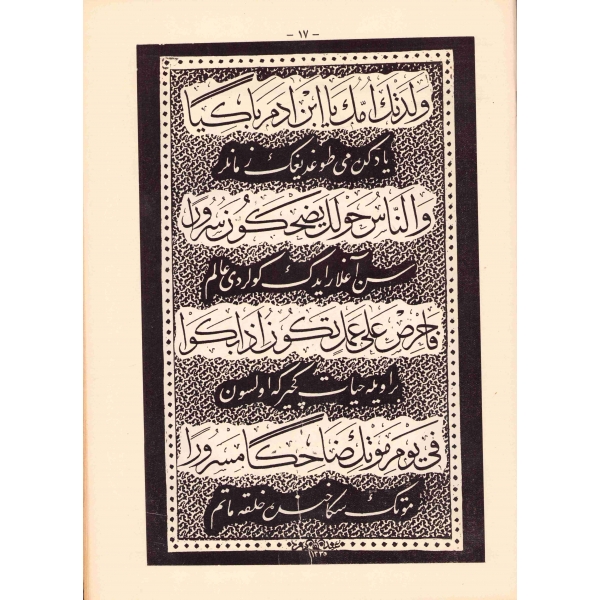 - ١٧ -
ولدتك امك يا ابن ادم باكيا
ياد كن می طوغدیغك زمانلر
والناس حولك يضحكون سرورا
سن آغلار ایدك كولردی عالم
فاحرص على عمل تكون اذا بكوا
بر اویله حیات كچیر كه اولسون
في يوم موتك ضاحكا مسرورا
موتك سكا خنده خلقه ماتم
١٣٣٥